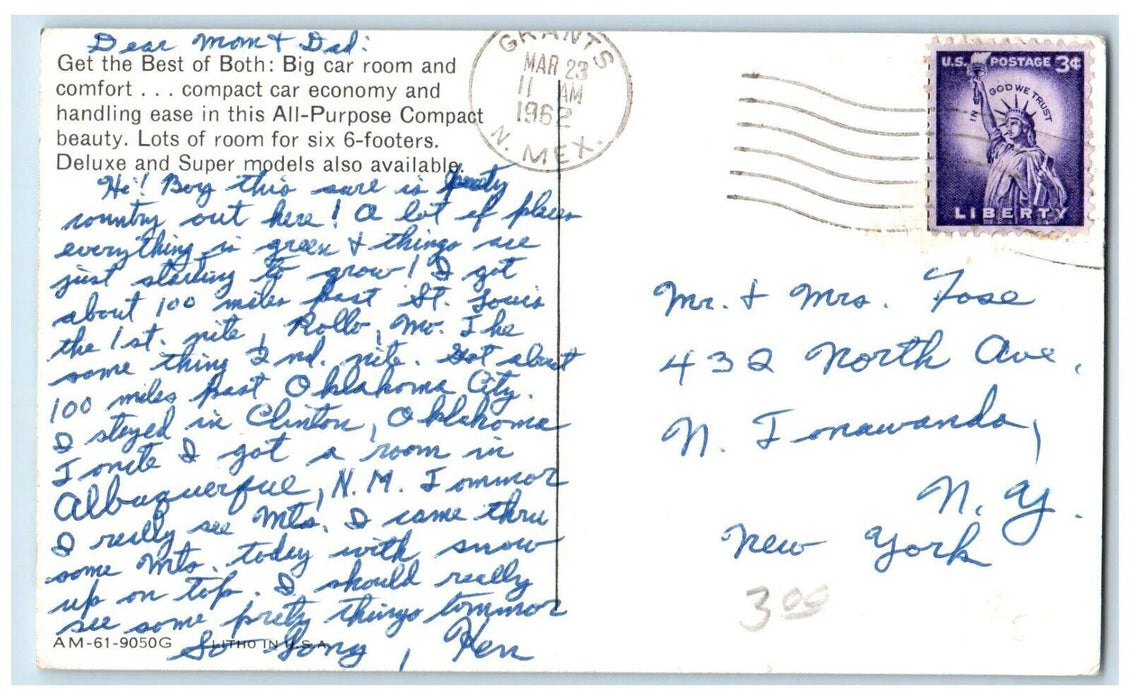 Dear Mom + Dad:
Get the Best of Both: Big car room and
comfort . . . compact car economy and
handling ease in this All-Purpose Compact
beauty. Lots of room for six 6-footers.
Deluxe and Super models also available.
Hi! Boy this sure is pretty
country out here! A lot of places
everything is green + things are
just starting to grow! I got
about 100 miles past St. Louis
the 1st. nite, Rollo, Mo. The
same thing 2nd. nite. Got about
100 miles past Oklahoma City.
I stayed in Clinton, Oklahoma
Tonite I got a room in
Albuquerque, N.M. Tommor
I really see Mts. I came thru
some Mts. today with snow
up on top. I should really
see some pretty things tommor
So Long, Ken
AM-61-9050G LITHO IN U.S.A.
GRANTS
MAR 23
11 AM
1962
N. MEX.
U.S. POSTAGE 3¢
IN GOD WE TRUST
LIBERTY
Mr. + Mrs. Fose
432 North Ave.
N. Tonawanda,
N.Y.
New York
3.00